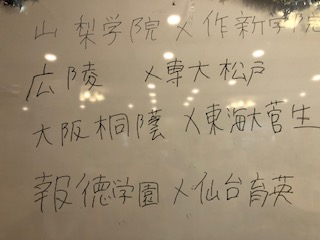 山梨学院 × 作新学院
広陵 ×専大松戸
大阪桐蔭 ×東海大菅生
報徳学園 × 仙台育英